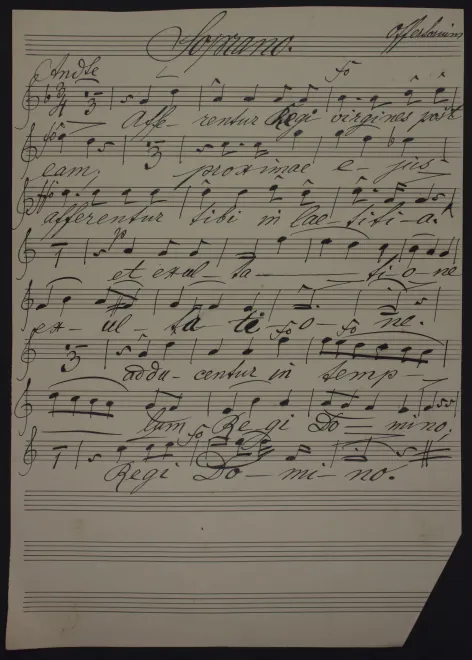 Soprano. Offertorium
Andte
Fo
3
4 3
Affe- rentur Regi virgines post
3
eam, proximae e- jus
afferentur tibi in lae- titi- a.
1 fo
et exul- ta- ti- o- ne
ex- ul- ta- ti- o- ne.
3 Fo Fo
addu- centur in temp-
lum Re- gi Do- mino,
1 Fo
Regi Do- mi- no.